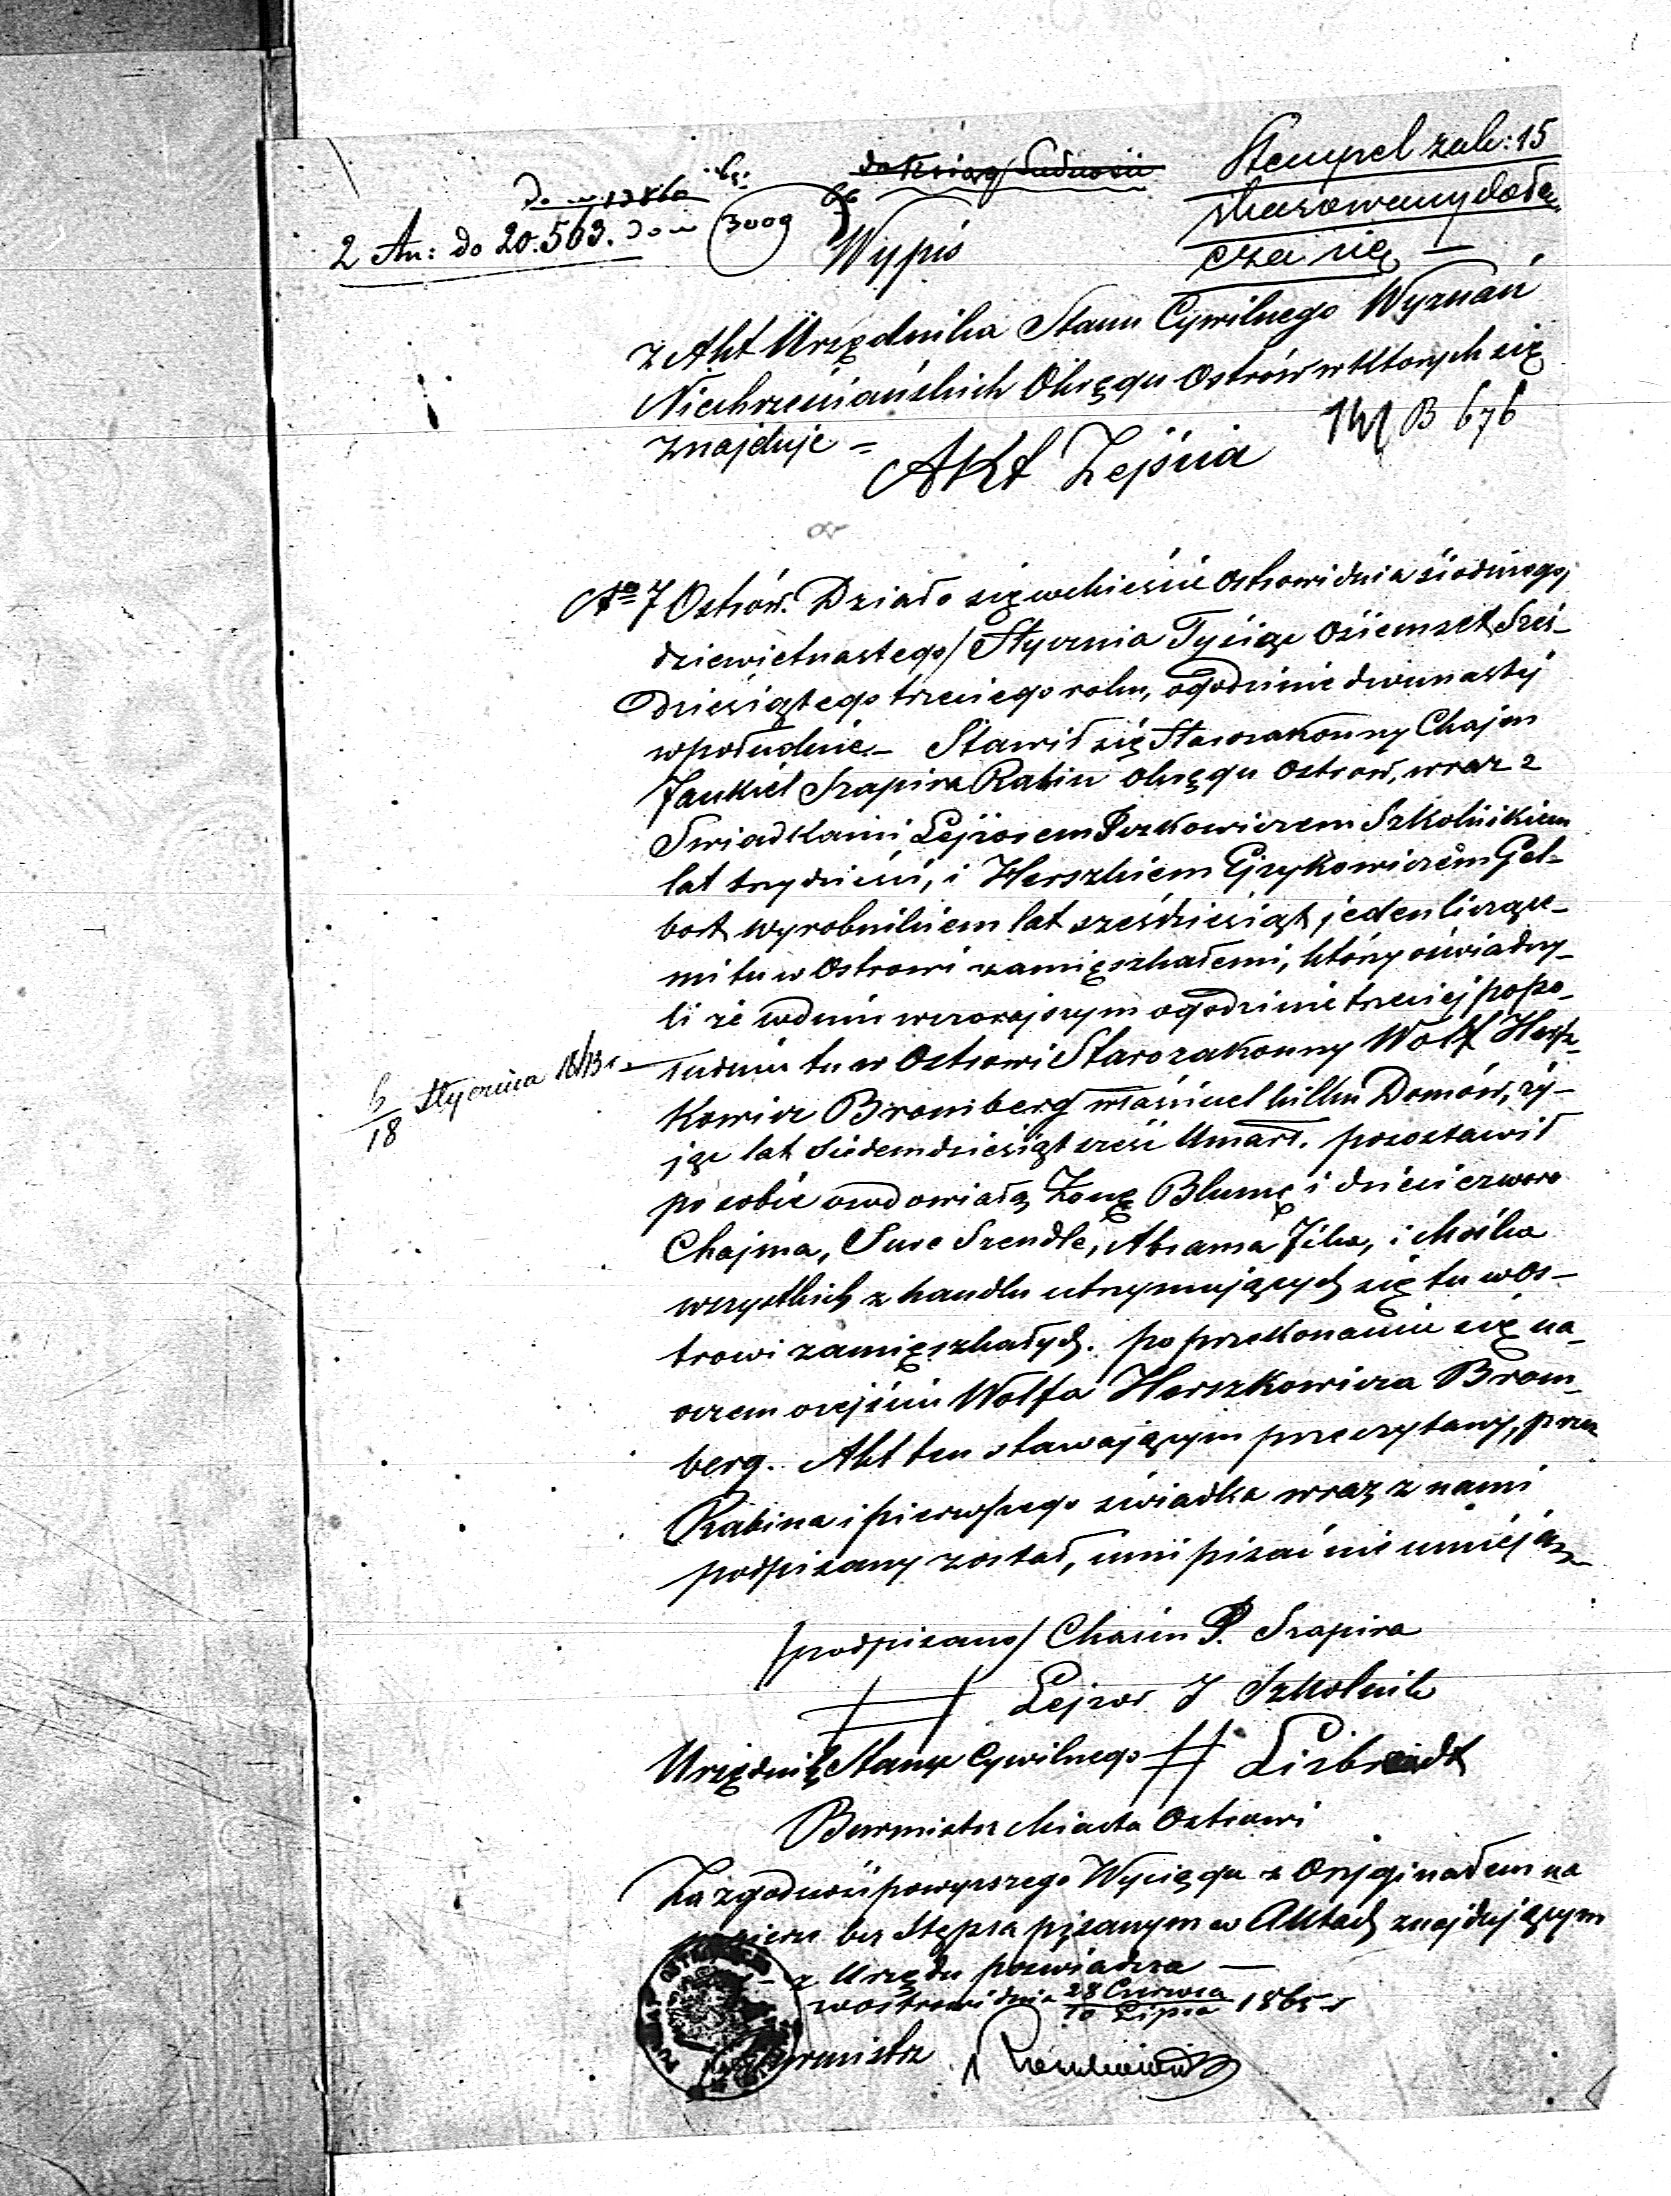 Stempel rub: 15
skasowany dołą
cza się —
do Ksiąg Ludności
2 An: do 20.563.
3009
Wypis
z Akt Urzędnika Stanu Cywilnego Wyznań
Niechrześciańskich Okręgu Ostrów w których się
znajduje =
B 676
Akt Zejścia
No 7 Ostrów. Działo się w Mieście Ostrowi dnia siódmego/
dziewietnastego/ Stycznia Tysiąc Ośiemset Sześ-
dziesiątego trzeciego roku, o godzinie dwunastej
w południe. – Stawił się Starozakonny Chajm
Jankiel Szapira Rabin Okręgu Ostrow, wraz z
Swiadkami Lejzorem Joskowiczem Szkolnikiem
lat trzydzieści, i Herszkiem Ejzykowiczem Gel-
bort wyrobnikiem lat sześdziesiąt jeden liczące-
mi tu w Ostrowi zamięszkałemi, którzy oświadczy-
li że w dniu wczorajszym o godzinie trzeciej popo-
łudniu tu w Ostrowi Starozakonny Wolf Hersz-
kowicz Bromberg właściciel kilku Domów, ży-
jąc lat Siedemdziesiąt sześć Umarł. pozostawił
po sobie owdowiałą Żonę Blumę i dzieci czworo
Chajma, Surę Szendle, Abrama Jcka, i Mośka
wszystkich z handlu utrzymujących się tu w Os-
trowi zamięszkałych. po przekonaniu się na-
ocznem o zejściu Wolfa Herszkowicza Brom-
berg. Akt ten stawającym przeczytany, przez
Rabina i pierwszego świadka wraz z nami
podpisany został, inni pisać nie umieją
6/18 Stycznia 1863 r –
/podpisano/ Chaim J. Szapira
Lejzor J Szkolnik
Urzędnik Stanu Cywilnego
Burmistrz Miasta Ostrowi
Za zgodność powyższego Wyciągu z Oryginałem na
papierze bez Stępla pisanym w Aktach znajdującym
się – z Urzędu poświadcza —
w Ostrowi dnia 28 Czerwca/10 Lipca 1865 r
Burmistrz